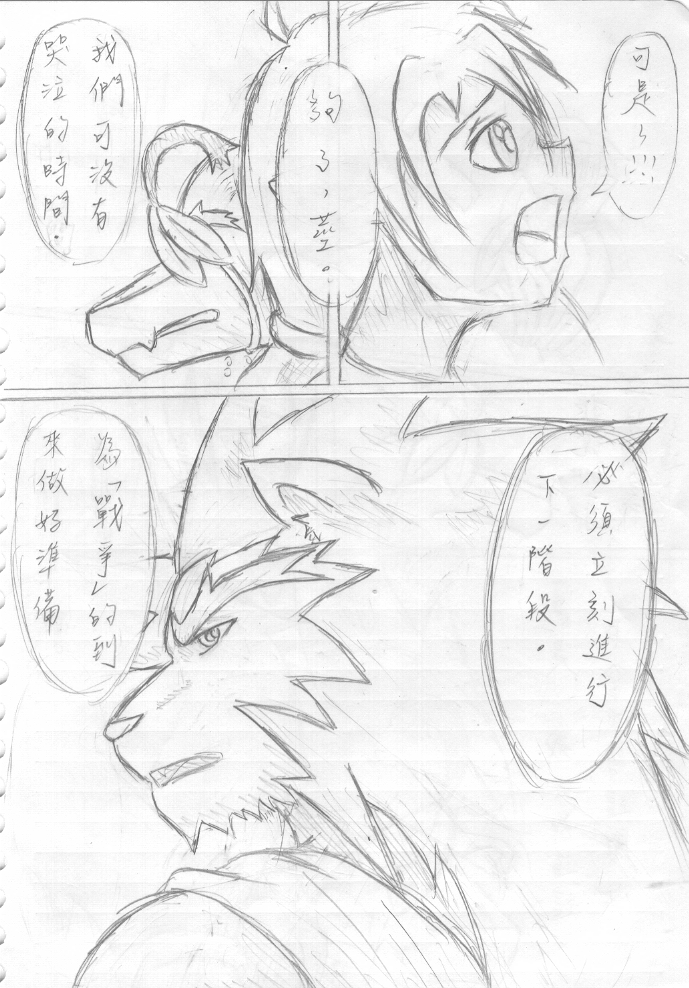 可是~!!!
夠了，藍。
我們可沒有
哭泣的時間.
必須立刻進行
下一階段.
為「戰爭」的到
來做好準備